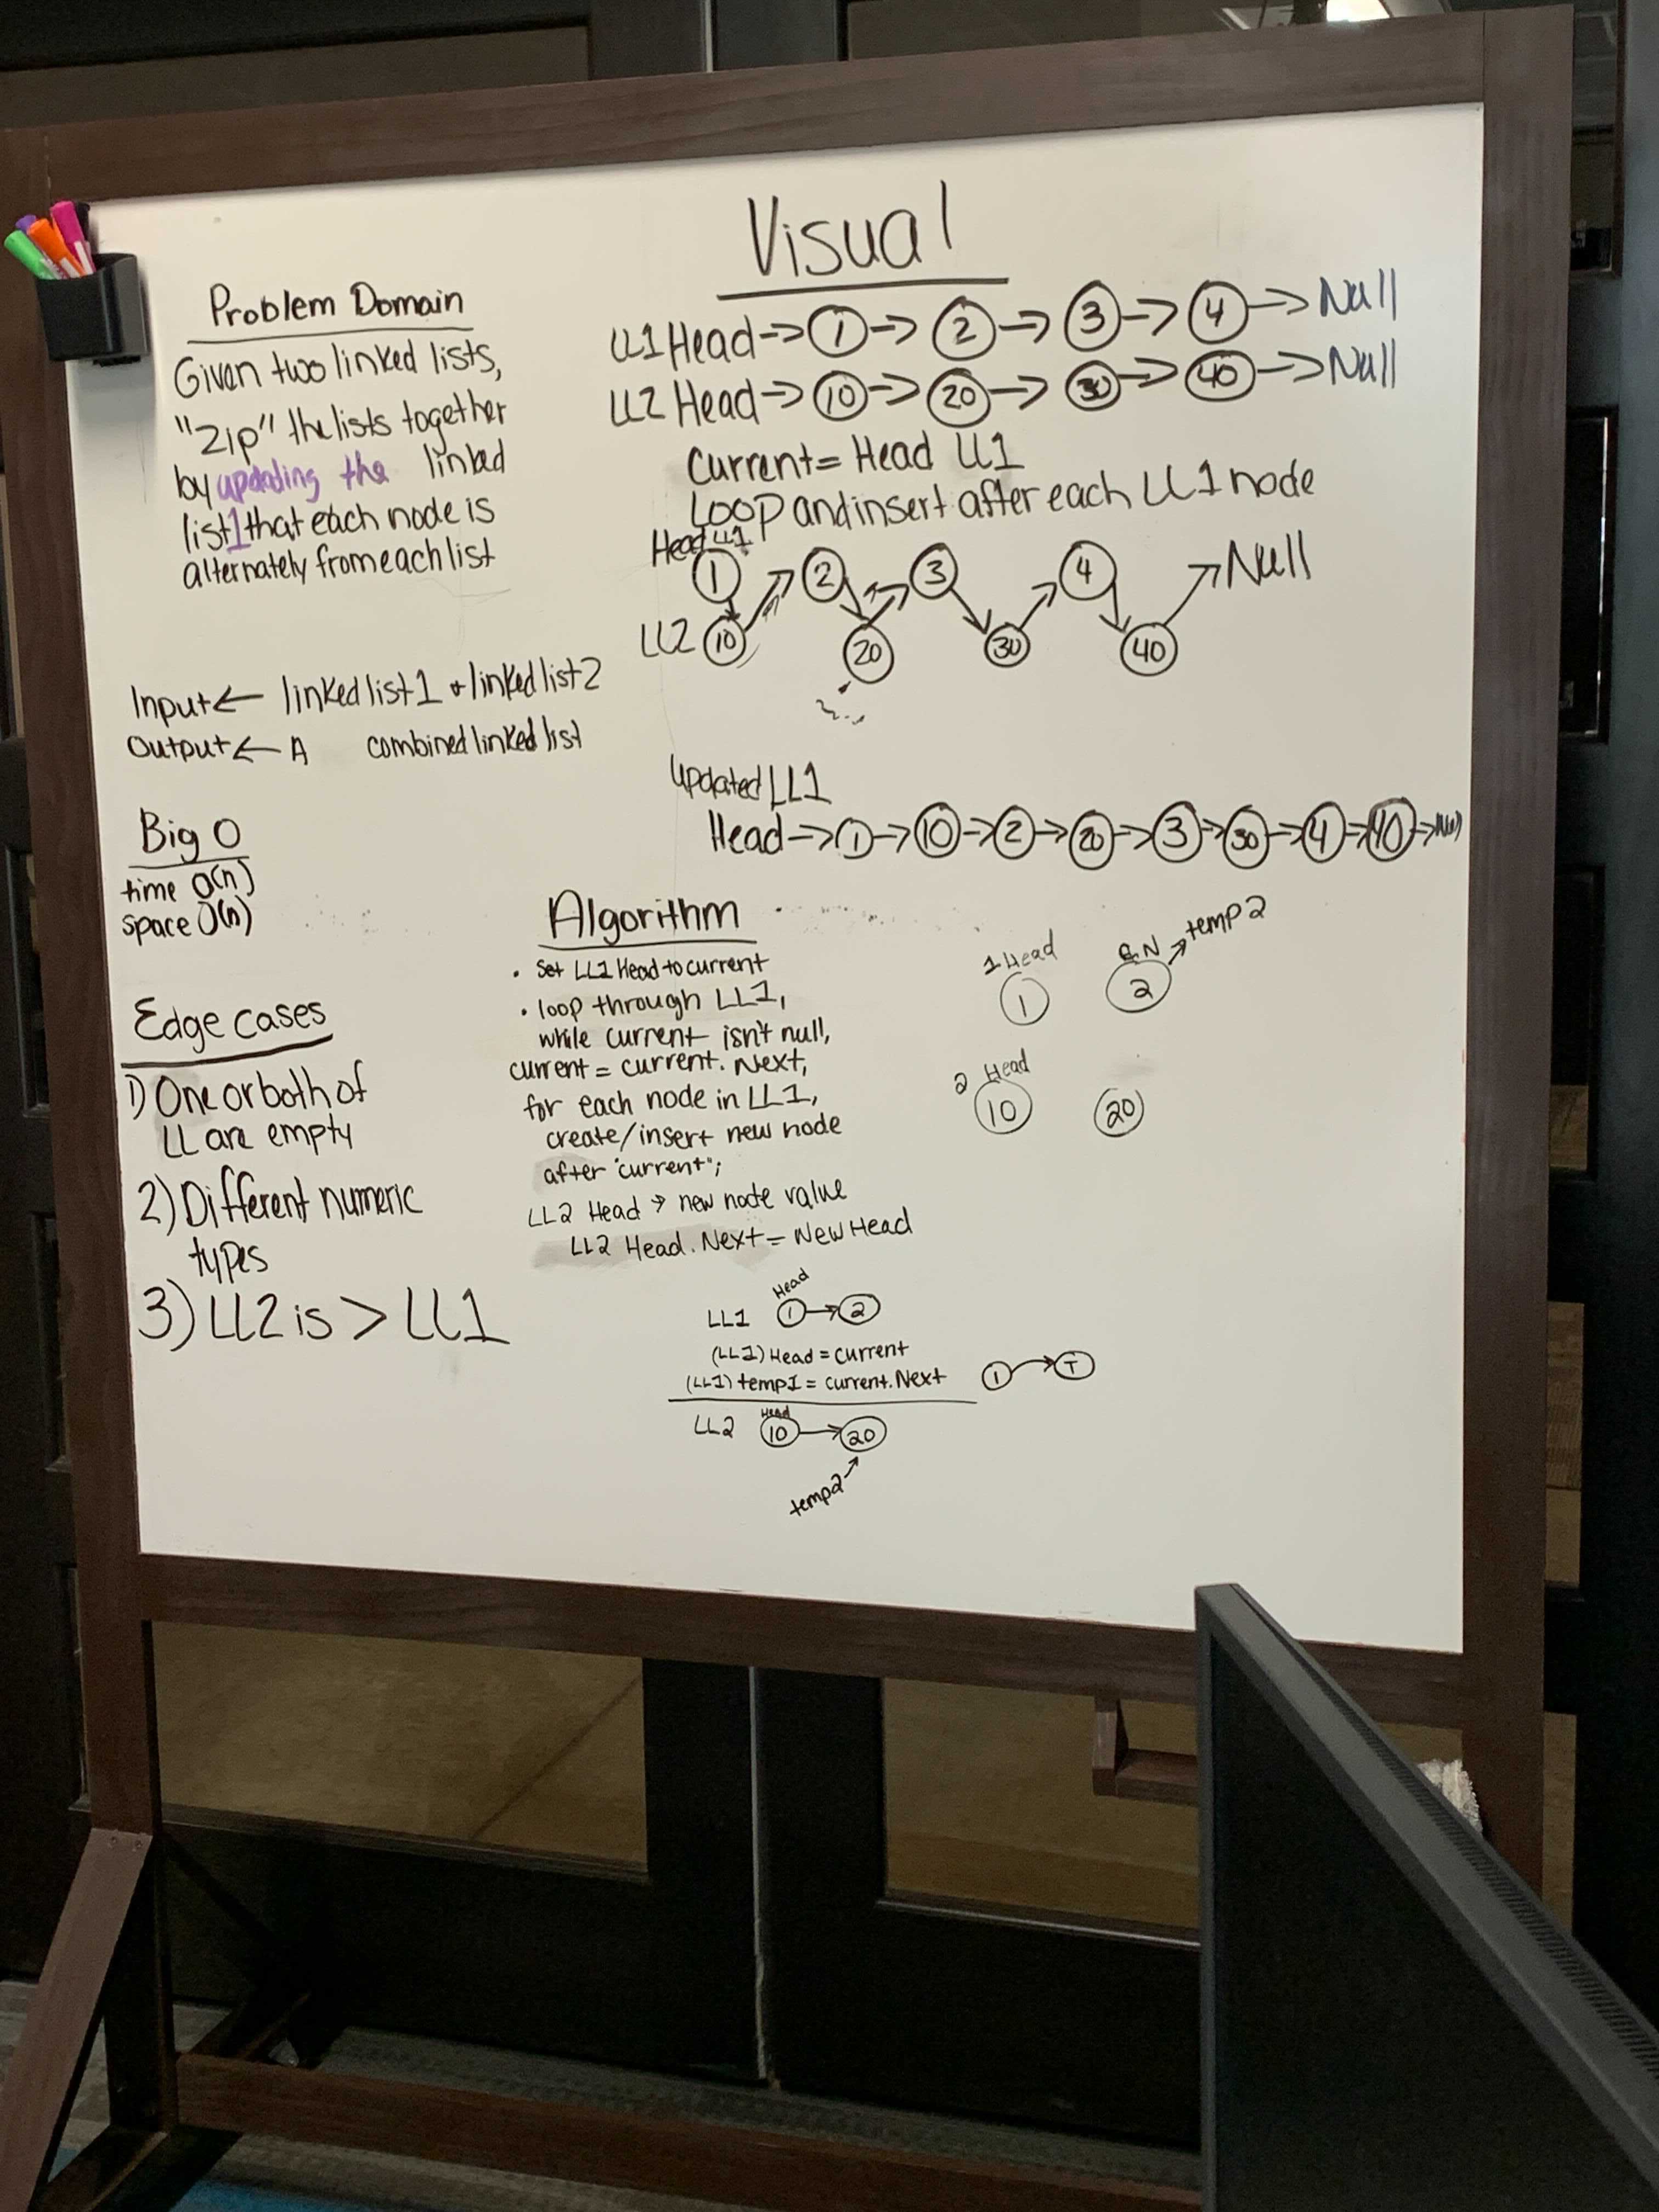 Visual
Problem Domain
Given two linked lists,
"Zip" the lists together
by updating the linked
list1 that each node is
alternately from each list
Input ← linked list 1 + linked list 2
Output ← A combined linked list
Big O
time O(n)
space O(n)
Edge cases
1) One or both of
LL are empty
2) Different numeric
types
3) LL2 is > LL1
LL1 Head → 1 → 2 → 3 → 4 → Null
LL2 Head → 10 → 20 → 30 → 40 → Null
Current = Head LL1
Loop and insert after each LL1 node
Head LL1
1 2 3 4 Null
LL2 10 20 30 40
Updated LL1
Head → 1 → 10 → 2 → 20 → 3 → 30 → 4 → 40 → Null
Algorithm
• Set LL1 Head to current
• loop through LL1,
while current isn't null,
current = current.Next,
for each node in LL1,
create/insert new node
after "current";
LL2 Head → new node value
LL2 Head.Next = New Head
1 Head → temp2
1 2
2 Head
10 20
Head
LL1 1 → 2
(LL1) Head = current
(LL1) temp1 = current.Next 1 → T
Head
LL2 10 → 20
temp2 →